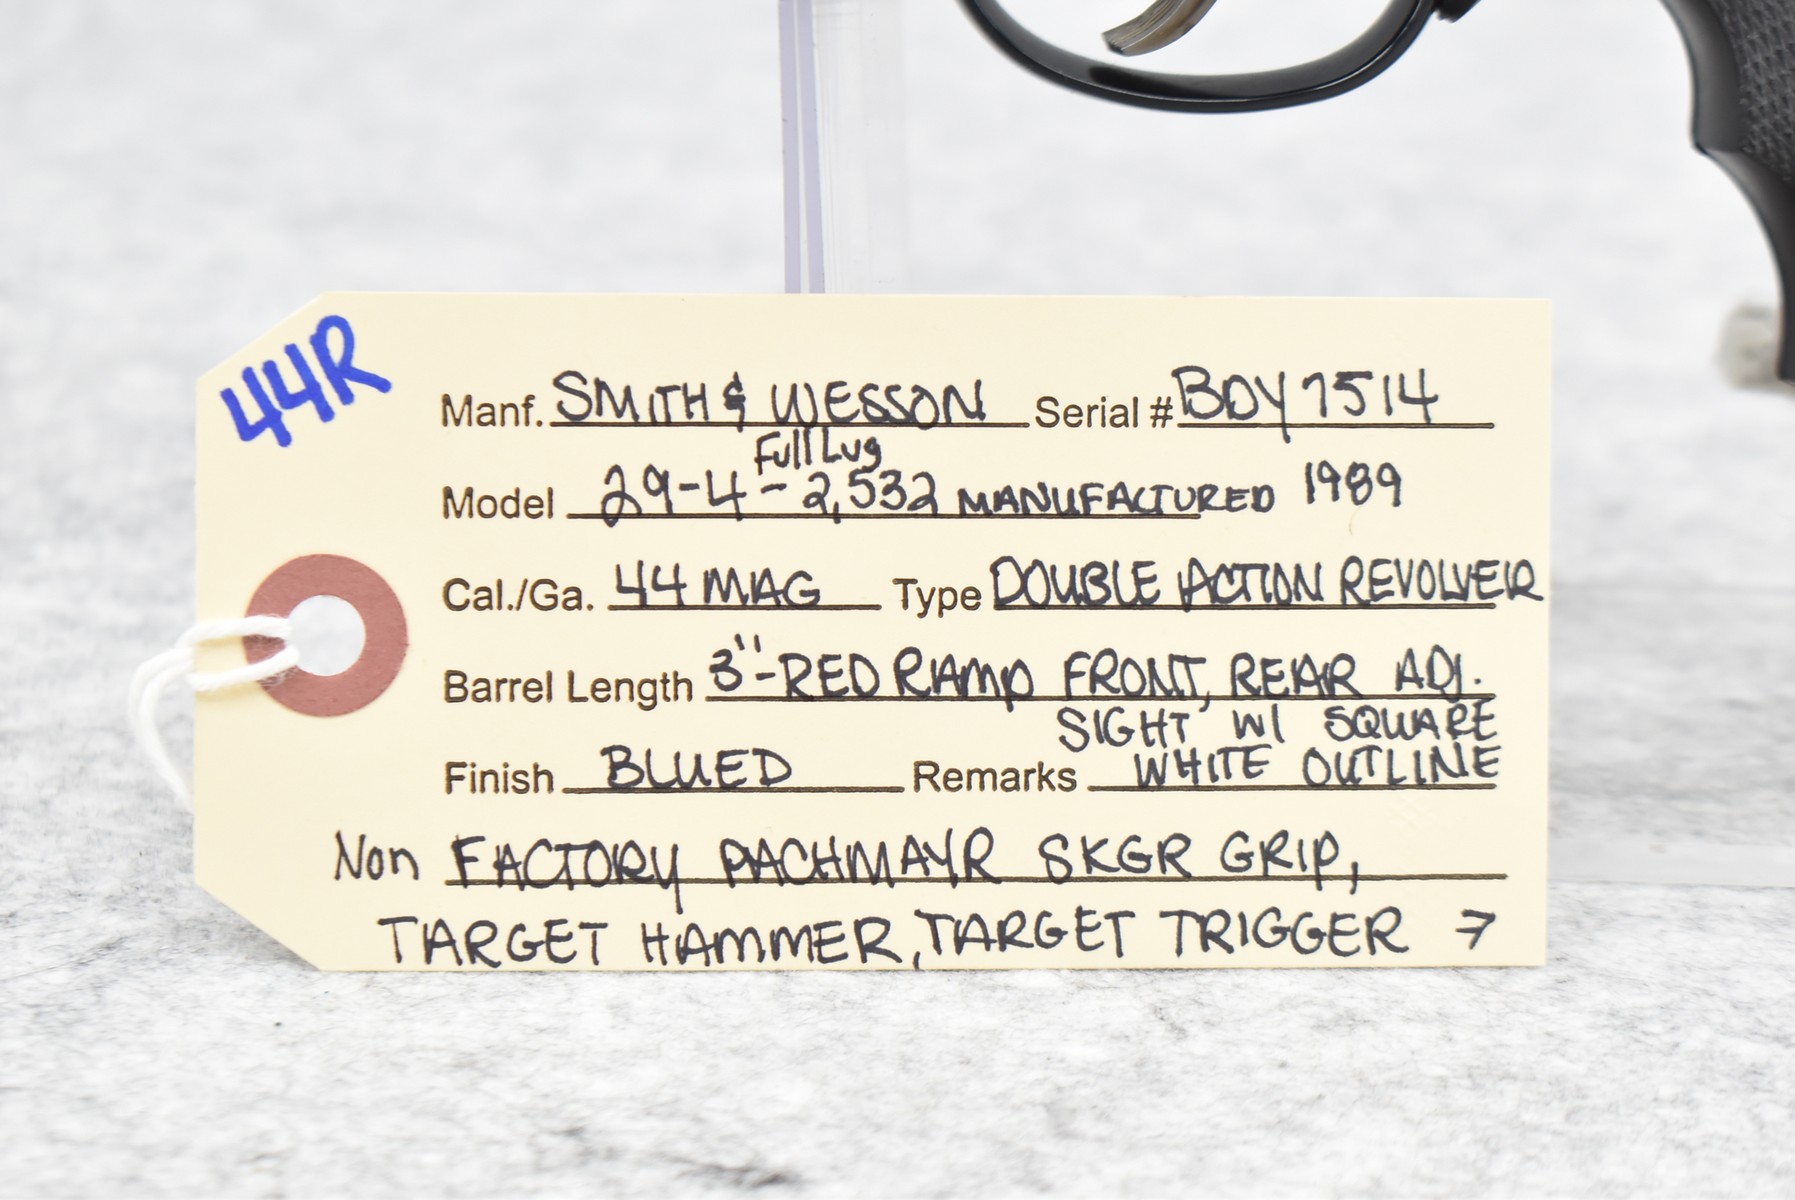 44R
Manf. SMITH & WESSON Serial # BDY7514
Full Lug
Model 29-4 - 2,532 MANUFACTURED 1989
Cal./Ga. 44 MAG Type DOUBLE ACTION REVOLVER
Barrel Length 3"-RED RAMP FRONT, REAR ADJ.
SIGHT W/ SQUARE
Finish BLUED Remarks WHITE OUTLINE
Non FACTORY PACHMAYR SKGR GRIP,
TARGET HAMMER, TARGET TRIGGER →